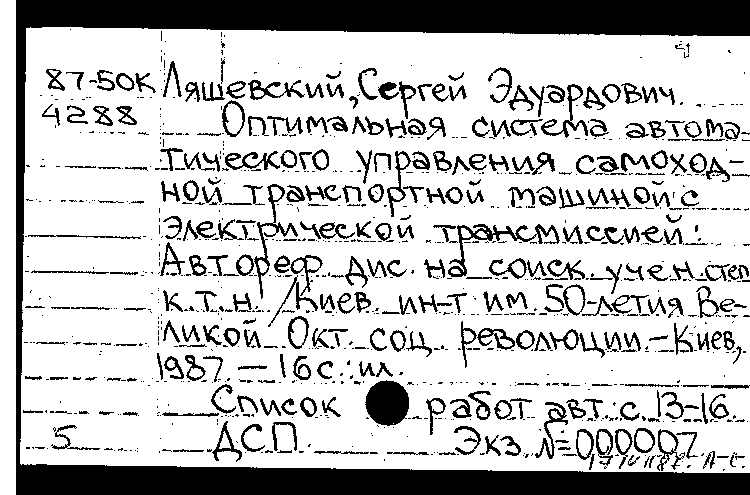 87-50К Ляшевский, Сергей Эдуардович.
4288 Оптимальная система автома-
тического управления самоход-
ной транспортной машиной с
электрической трансмиссией:
Автореф. дис. на соиск. учен. степ
к.т.н. / Киев. ин-т им. 50-летия Ве-
ликой Окт. соц. революции. - Киев,
1987. - 16 с.: ил.
Список работ авт.: с. 13-16.
5 ДСП. Экз. №000007